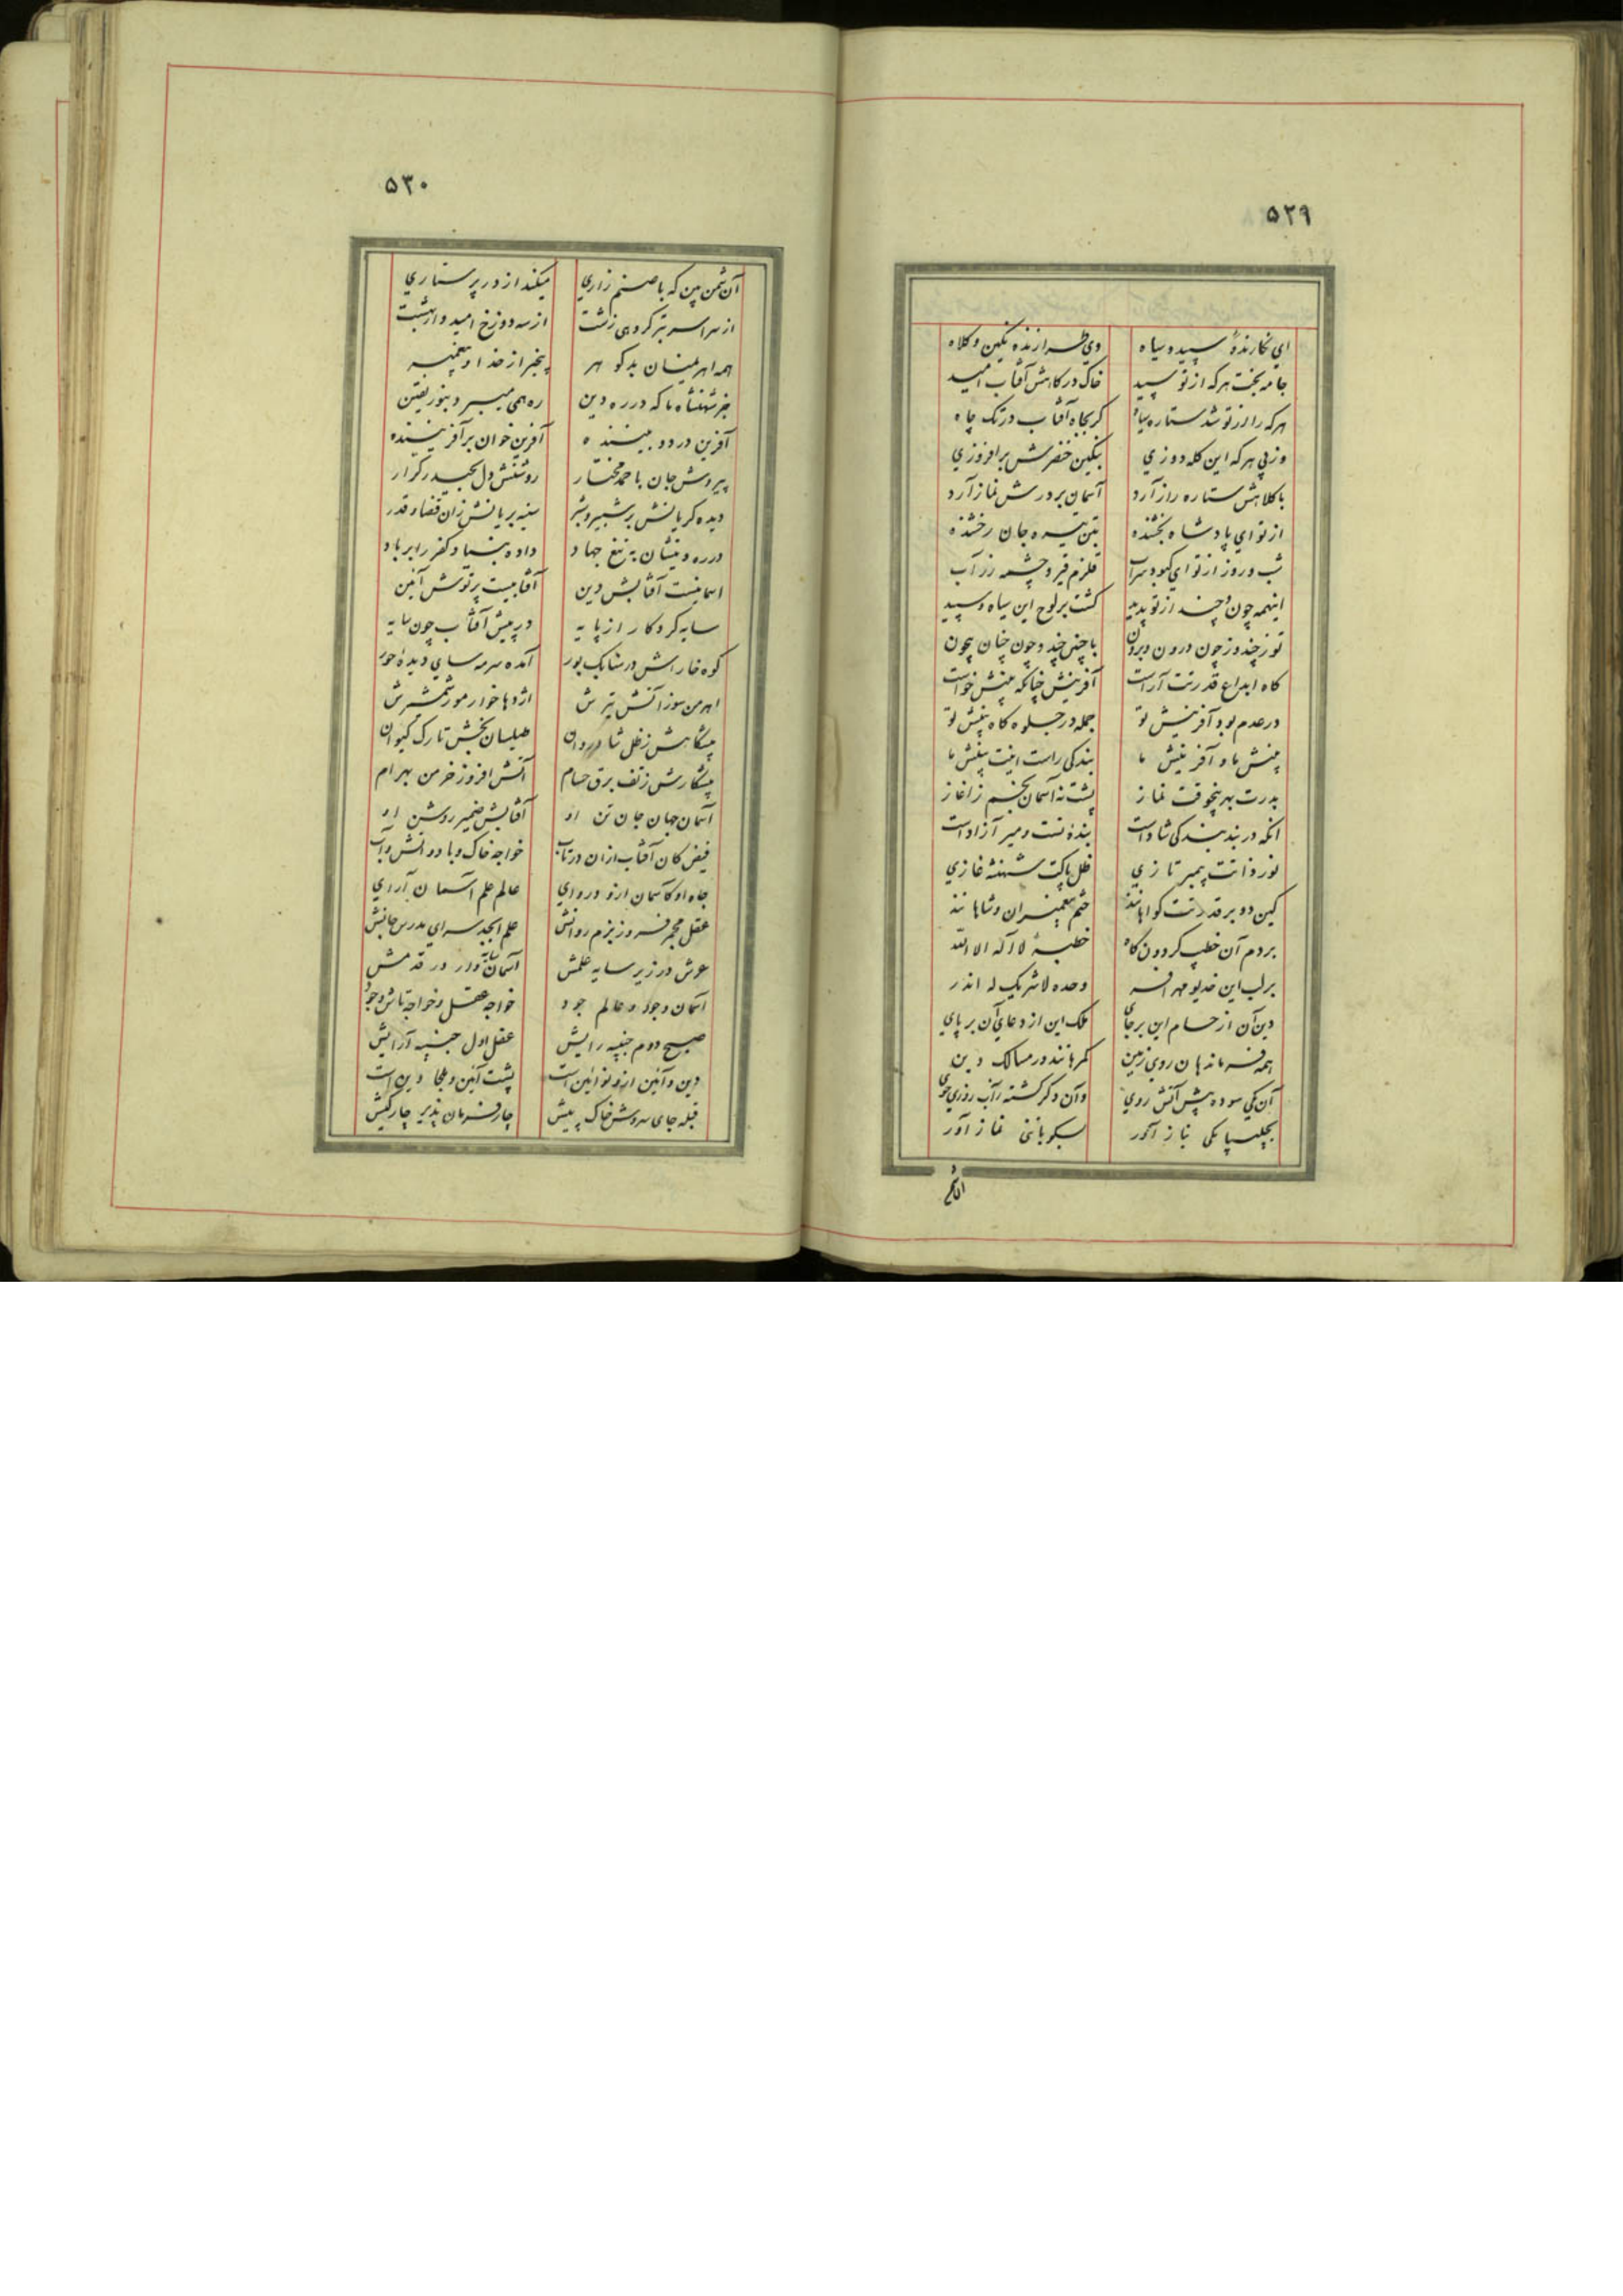 ۵۲۹
اي نگارندهٔ سپید و سیاه وي طرازنده نگین و کلاه
جامه بخت هرکه از تو سپید خاک درگاهش آفتاب امید
هرکه را از تو شد ستاره سیاه گر بجاه آفتاب در تک چاه
وز پی هرکه این کله دوزي بنگین خنصرش برافروزي
با کلاهش ستاره راز آرد آسمان بر درش نماز آرد
از تو اي پادشاه بخشنده تن تیره جان رخشنده
شب و روز از تو اي کبود سراب قلزم قیر و چشمه زرآب
اینهمه چون و چند از تو پدید گشت بر لوح این سیاه و سپید
تو ز چند و ز چون درون و برون با چنین چند و چون چنان بیچون
گاه ابداع قدرتت آراست آفرینش چنانکه بینش خواست
در عدم بود آفرینش تو جمله در جلوه گاه بینش تو
بینش ما و آفرینش ما بندگی راست اینت بینش ما
بدرت بهر پنجوقت نماز پشت نه آسمان بخم ز اغاز
انکه در بند بندگی شاد است بندهٔ تست و میر آزاد است
نور ذاتت پیمبر تازي ظل پاکت شهنشه غازي
کین دو بر قدرتت گواهانند ختم پیغمبران و شاهانند
بر دم آن خطیب گردون گاه خطبهٔ لا اله الا الله
بر لب این خدیو مهر افسر وحده لا شریک له اندر
دین آن از حسام این برجاي ملک این از دعاي آن برپاي
همه فرماندهان روي زمین گمرهانند در مسالک دین
آن یکی سوده پیش آتش روي وآن دگر گشته زآب روزي جوي
بچلیپا یکی نیاز آور بسکوبا یکی نماز آور
۵۳۰
آن شمن بین که با صنم زاري میکند از در پرستاري
از سراسر بتر گروهی زشت از سه دوزخ امید وار بهشت
همه اهریمنان بد گوهر بیخبر از خدا و پیغمبر
جز شهنشاه ما که در ره دین ره همی میسپرد بنور یقین
آفرین در دو بیننده آفرین خوان بر آفریننده
پیروش جان با احمد مختار روشنش دل بحیدر کرار
دیده گریانش بر شبیر و شبر سینه بریانش زان قضا و قدر
در ره دینشان به تیغ جهاد داده بنیاد کفر را بر باد
اسمانیست آفتابش دین آفتابیست پرتوش آئین
سایه کردگار از پایه در پیش آفتاب چون سایه
کوه خاراش در سنابک بور آمده سرمه ساي دیدهٔ حور
اهرمن سوز آتش تیرش اژدها خوار مور شمشیرش
پیشگاهش ز ظل شادروان طیلسان بخش تارک کیوان
پیشکارش ز تف برق حسام آتش افروز خرمن بهرام
آسمان جهان جان تن او آفتابش ضمیر روشن او
فیض کان آفتاب ازان در تاب خواجه خاک و باد و آتش و آب
جاه او کاسمان ازو درواي عالم علم آسمان آراي
عقل مجمر فروز بزم روانش علم ابجد سراي مدرس جانش
عرش در زیر سایه علمش آسمان سایه وار در قدمش
آسمان وجود و عالم جود خواجه عقل و خواجه تاش وجود
صبح دوم جنیبه رایش عقل اول جنیبه آرایش
دین و آئین ازو نوائین است پشت آئین و ملجا دین است
قبله جاي سروش خاک پیش چار فرمان پذیر چار کیش